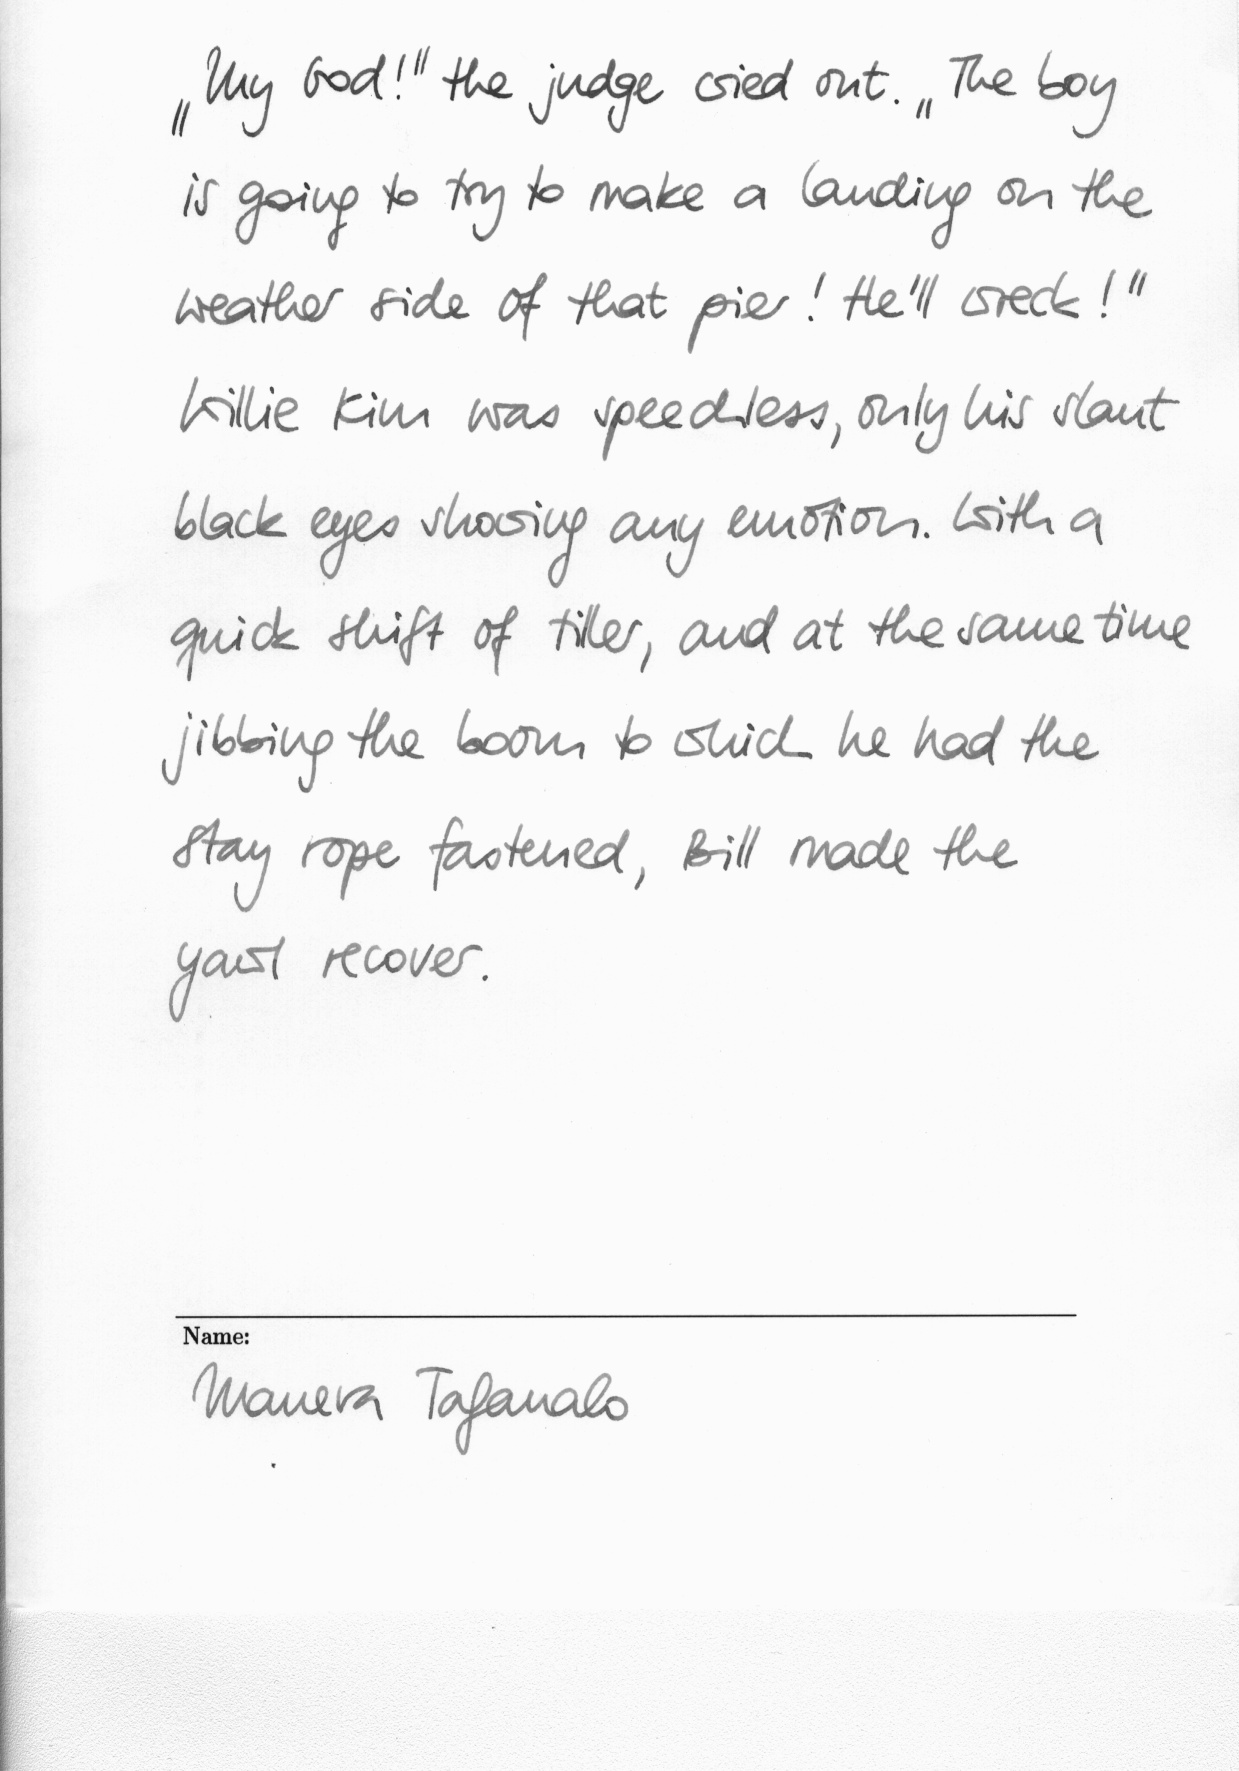 „My God!" the judge cried out. „The boy
is going to try to make a landing on the
weather side of that pier! He'll wreck!"
Willie Kim was speechless, only his slant
black eyes showing any emotion. With a
quick shift of tiller, and at the same time
jibbing the boom to which he had the
stay rope fastened, Bill made the
yawl recover.
Name: